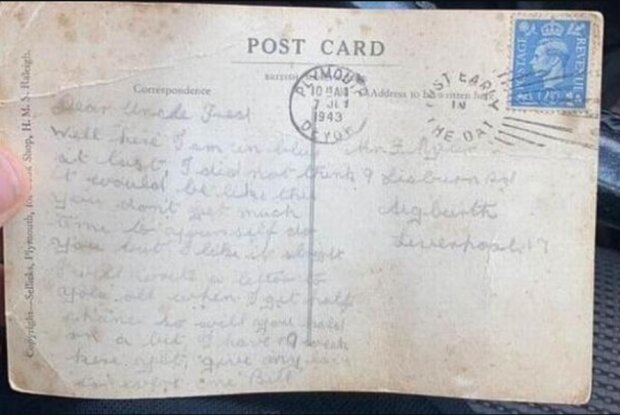 POST CARD
Correspondence
Address to be written here
PLYMOUTH
DEVON
1943
POST EARLY
IN
THE DAY
POSTAGE
REVENUE
Dear Uncle Fred
Well here I am in blue
at last, I did not think
it would be like this
you don't get much
time to yourself do
you but I like it alright
I will write a letter to
you all when I get half
chance so will you hold
on a bit, I have
here yet, give my love
to everyone Bill
Mr F.
9 Lisburn Rd
Aigburth
Liverpool 17
Copyright—Sellicks, Plymouth, Shop, H.M.S. Raleigh.